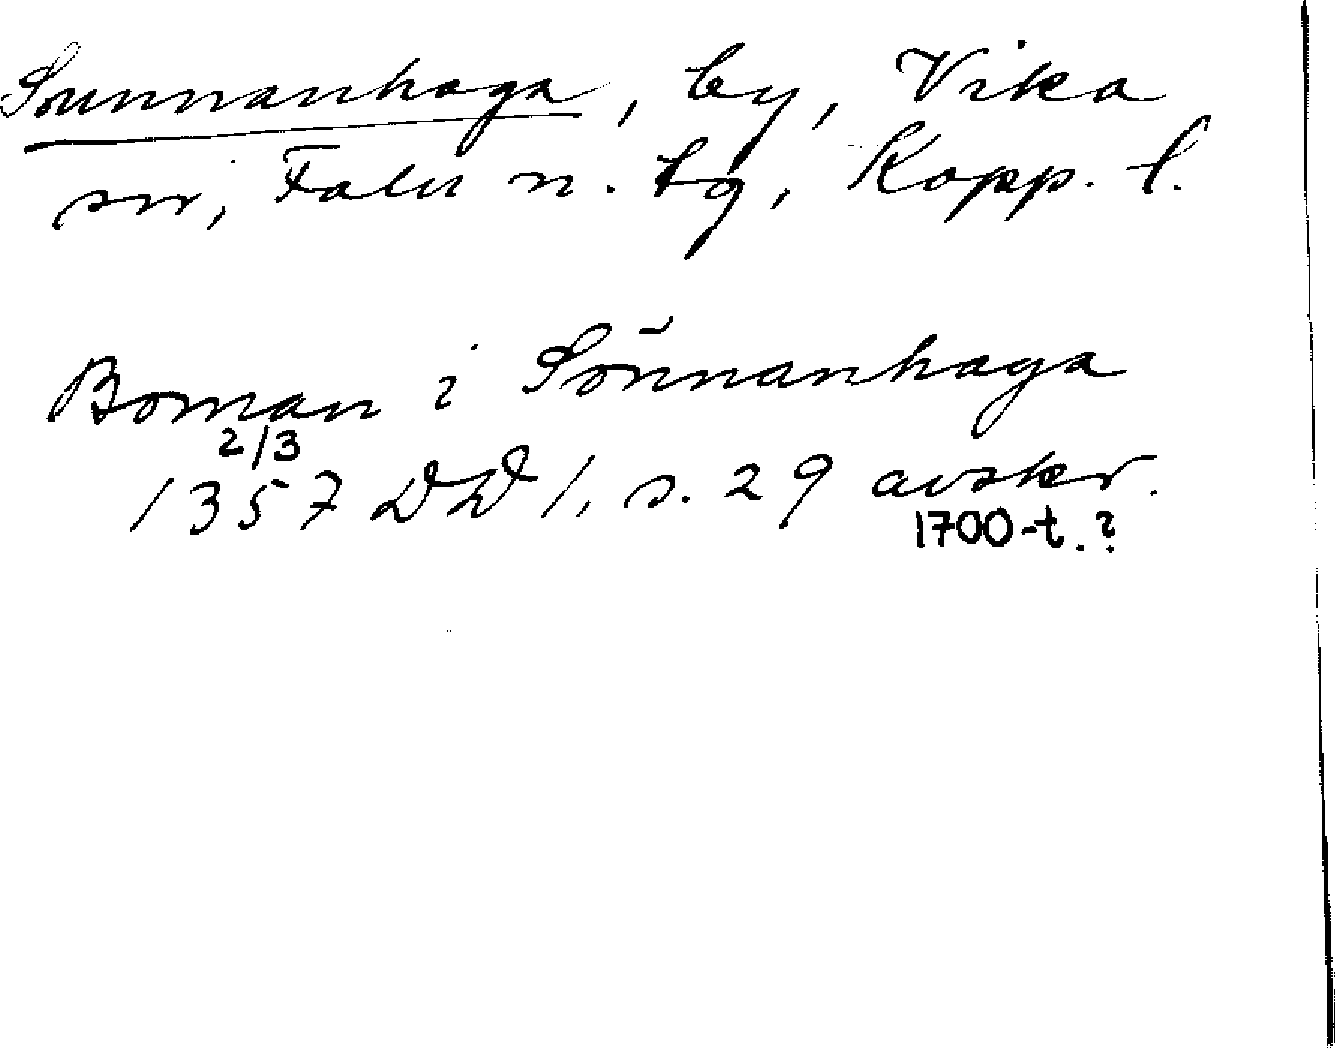 Sunnanhaga, by, Vika
sn, Falu n. tg, Kopp. l.
Boman i Sonnanhaga
2/3
1357 DD 1, s. 29 avskr.
1700-t.?